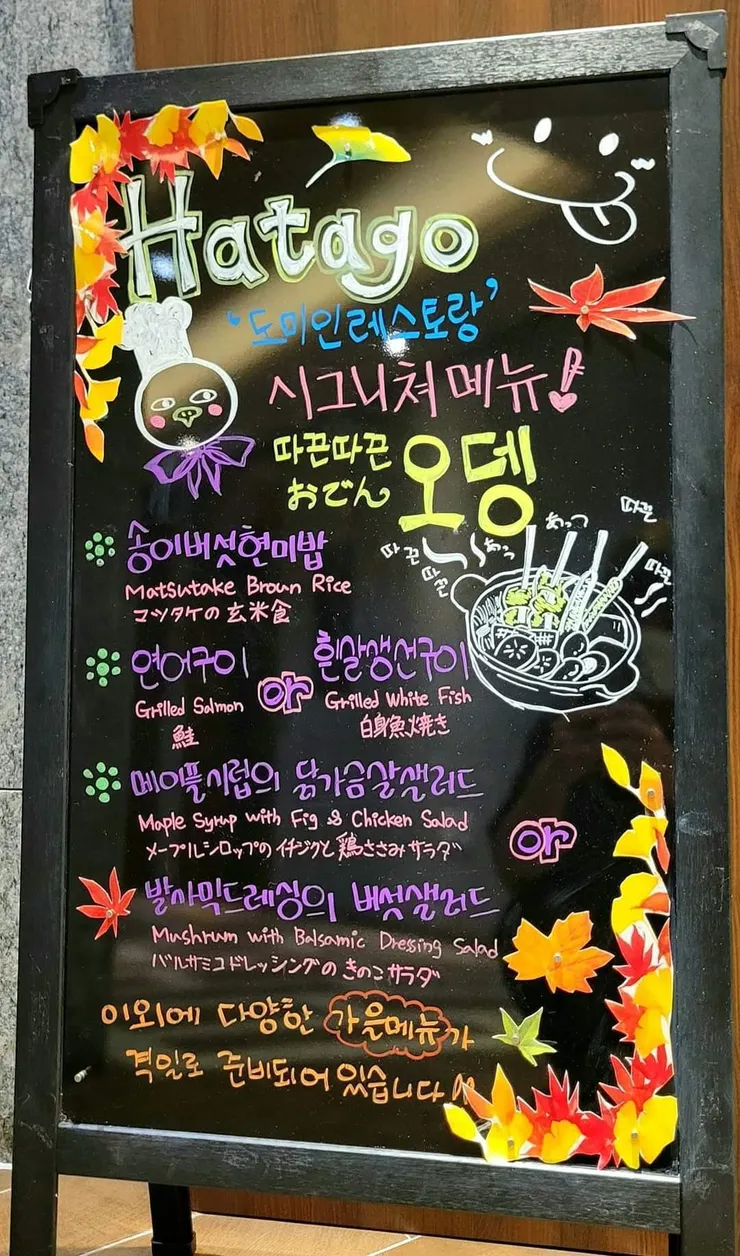 Hatago
'도미인레스토랑'
시그니쳐메뉴!
따끈따끈
おでん
오뎅
따끈
따끈
あっつ
あっつ
따끈
따끈
송이버섯현미밥
Matsutake Broun Rice
マツタケの玄米食
연어구이
Grilled Salmon
鮭
or
흰살생선구이
Grilled White Fish
白身魚焼き
메이플시럽의 닭가슴살샐러드
Maple Syrup with Fig & Chicken Salad
メープルシロップのイチジクと鶏ささみサラダ
or
발사믹드레싱의 버섯샐러드
Mushrum with Balsamic Dressing Salad
バルサミコドレッシングのきのこサラダ
이외에 다양한 가을메뉴가
격일로 준비되어 있습니다